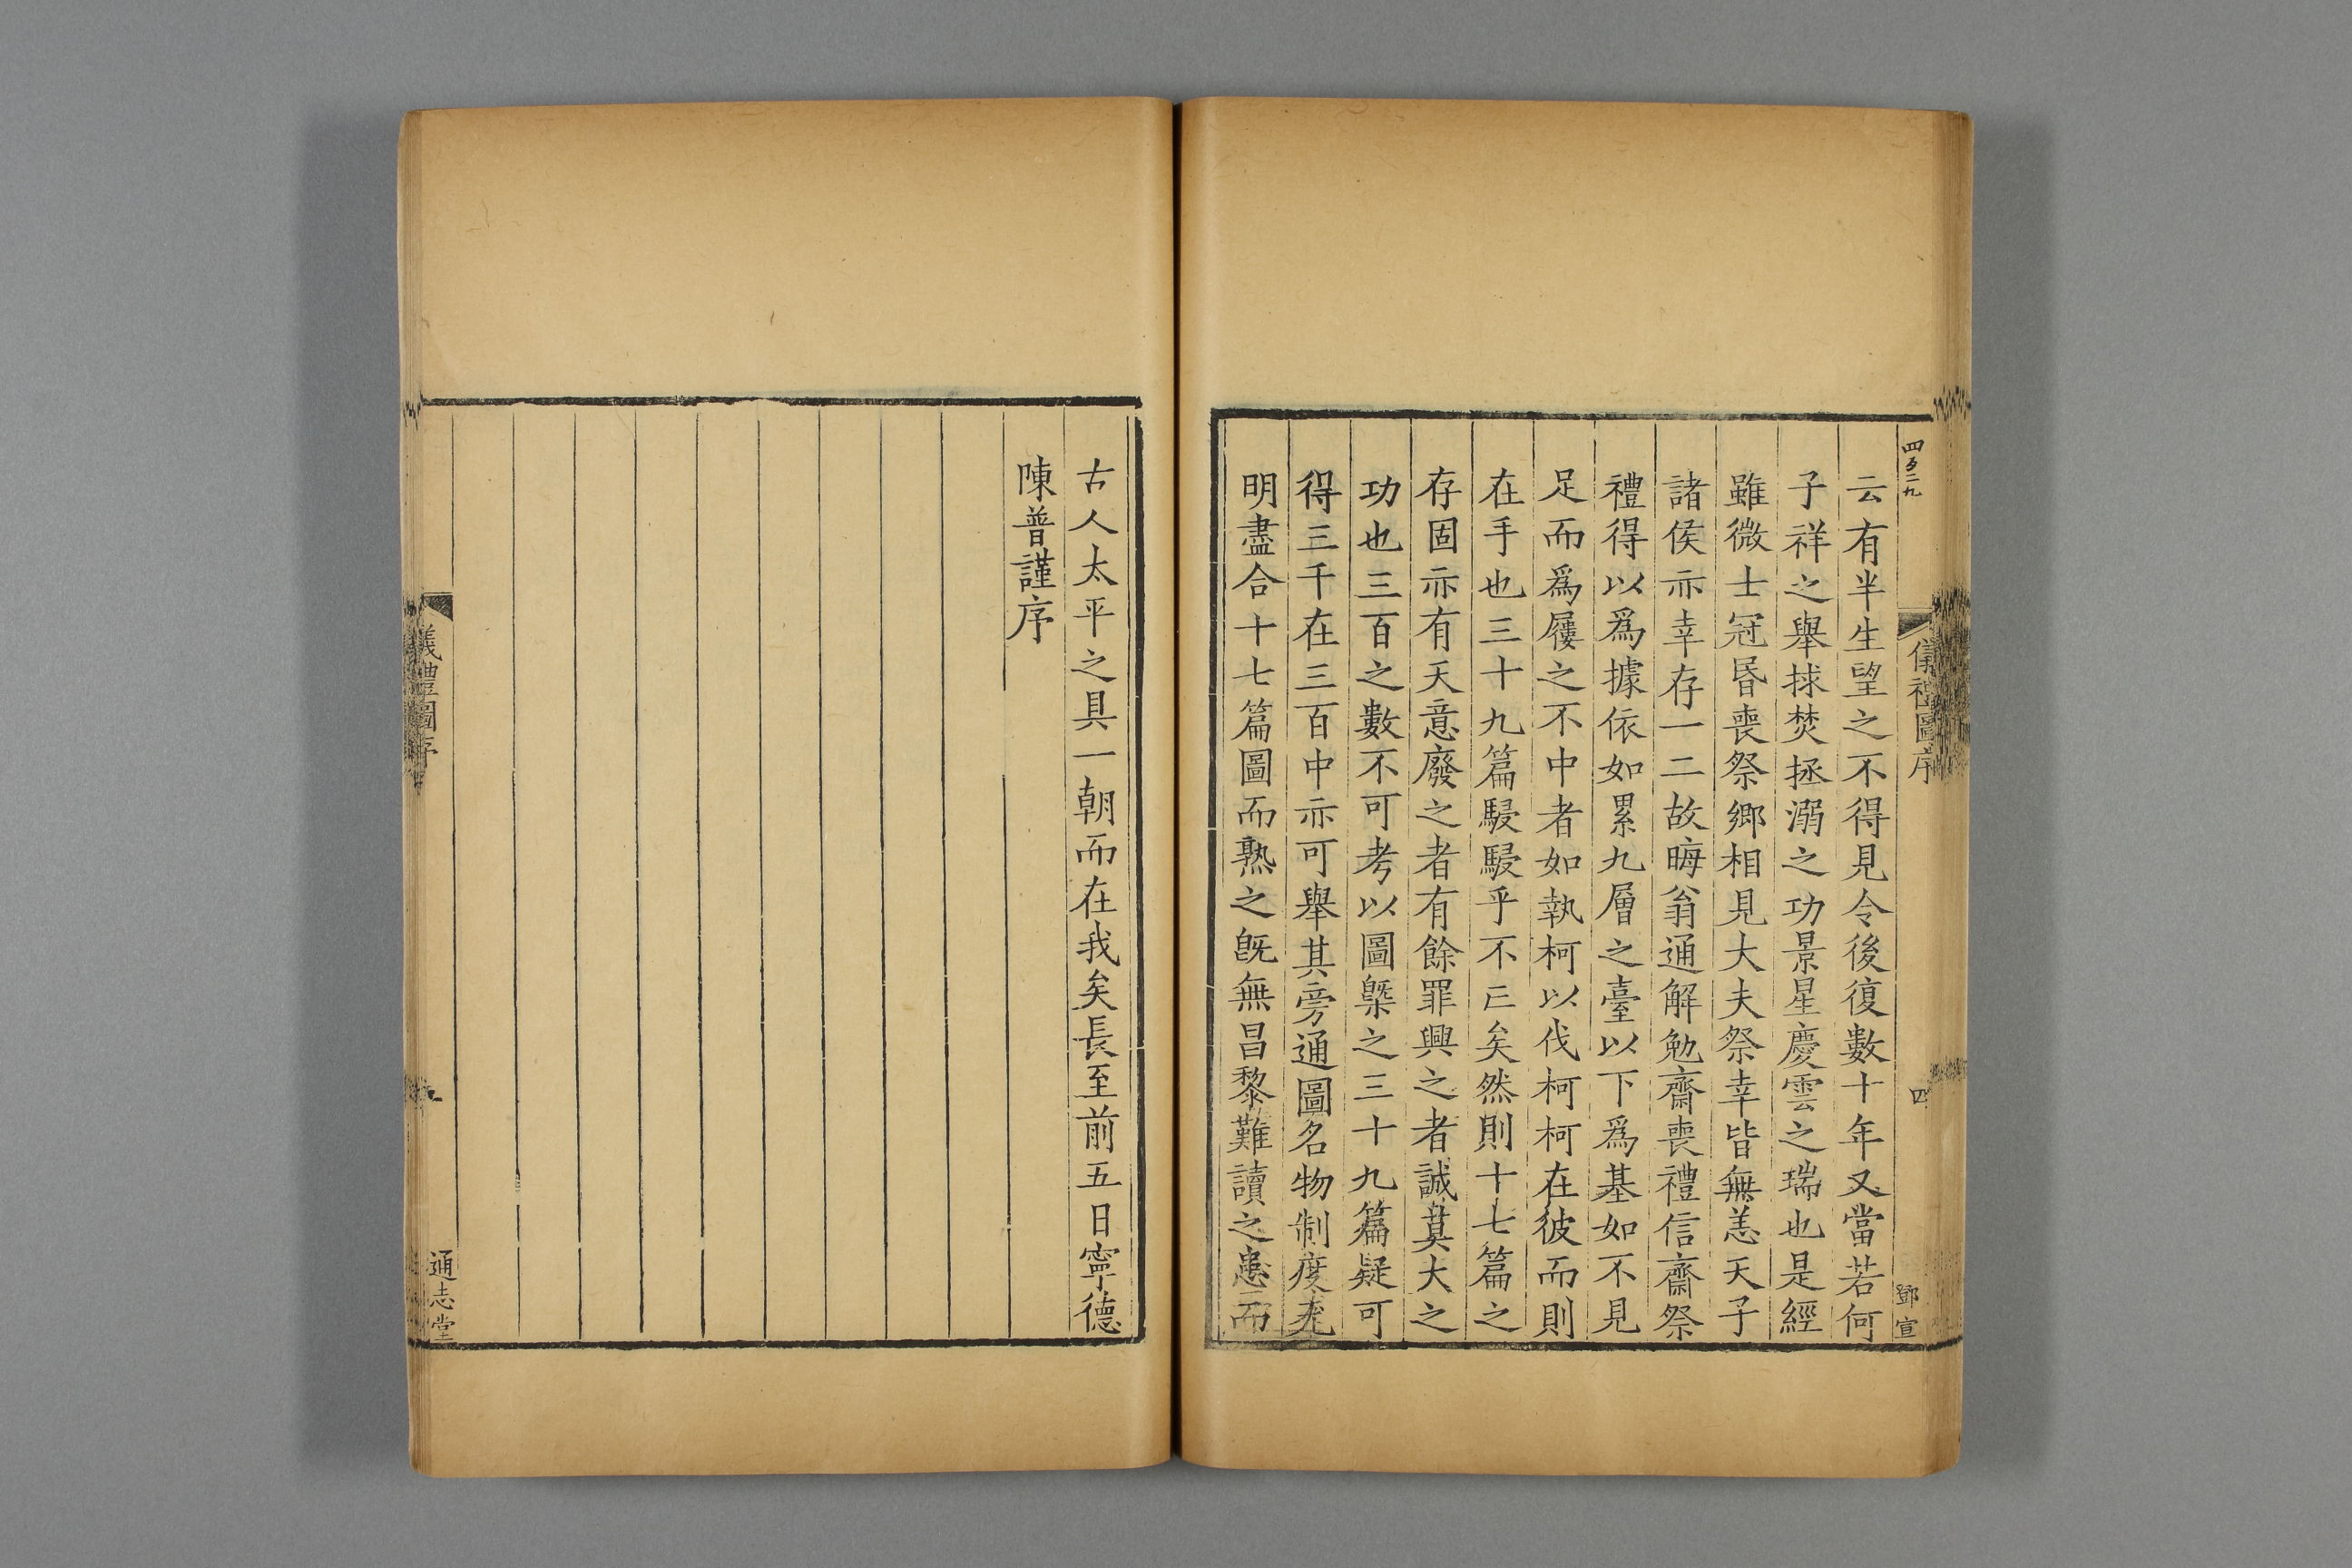 四百二九
儀禮圖序
四
鄧宣
云有半生望之不得見今後復數十年又當若何
子祥之舉捄焚拯溺之功景星慶雲之瑞也是經
雖微士冠昏喪祭鄉相見大夫祭幸皆無恙天子
諸侯亦幸存一二故晦翁通解勉齋喪禮信齋祭
禮得以爲據依如累九層之臺以下爲基如不見
足而爲屨之不中者如執柯以伐柯柯在彼而則
在手也三十九篇駸駸乎不亡矣然則十七篇之
存固亦有天意廢之者有餘罪興之者誠莫大之
功也三百之數不可考以圖槩之三十九篇疑可
得三千在三百中亦可舉其旁通圖名物制度尭
明盡合十七篇圖而熟之旣無昌黎難讀之患而
古人太平之具一朝而在我矣長至前五日寧德
陳普謹序
儀禮圖序
通志堂